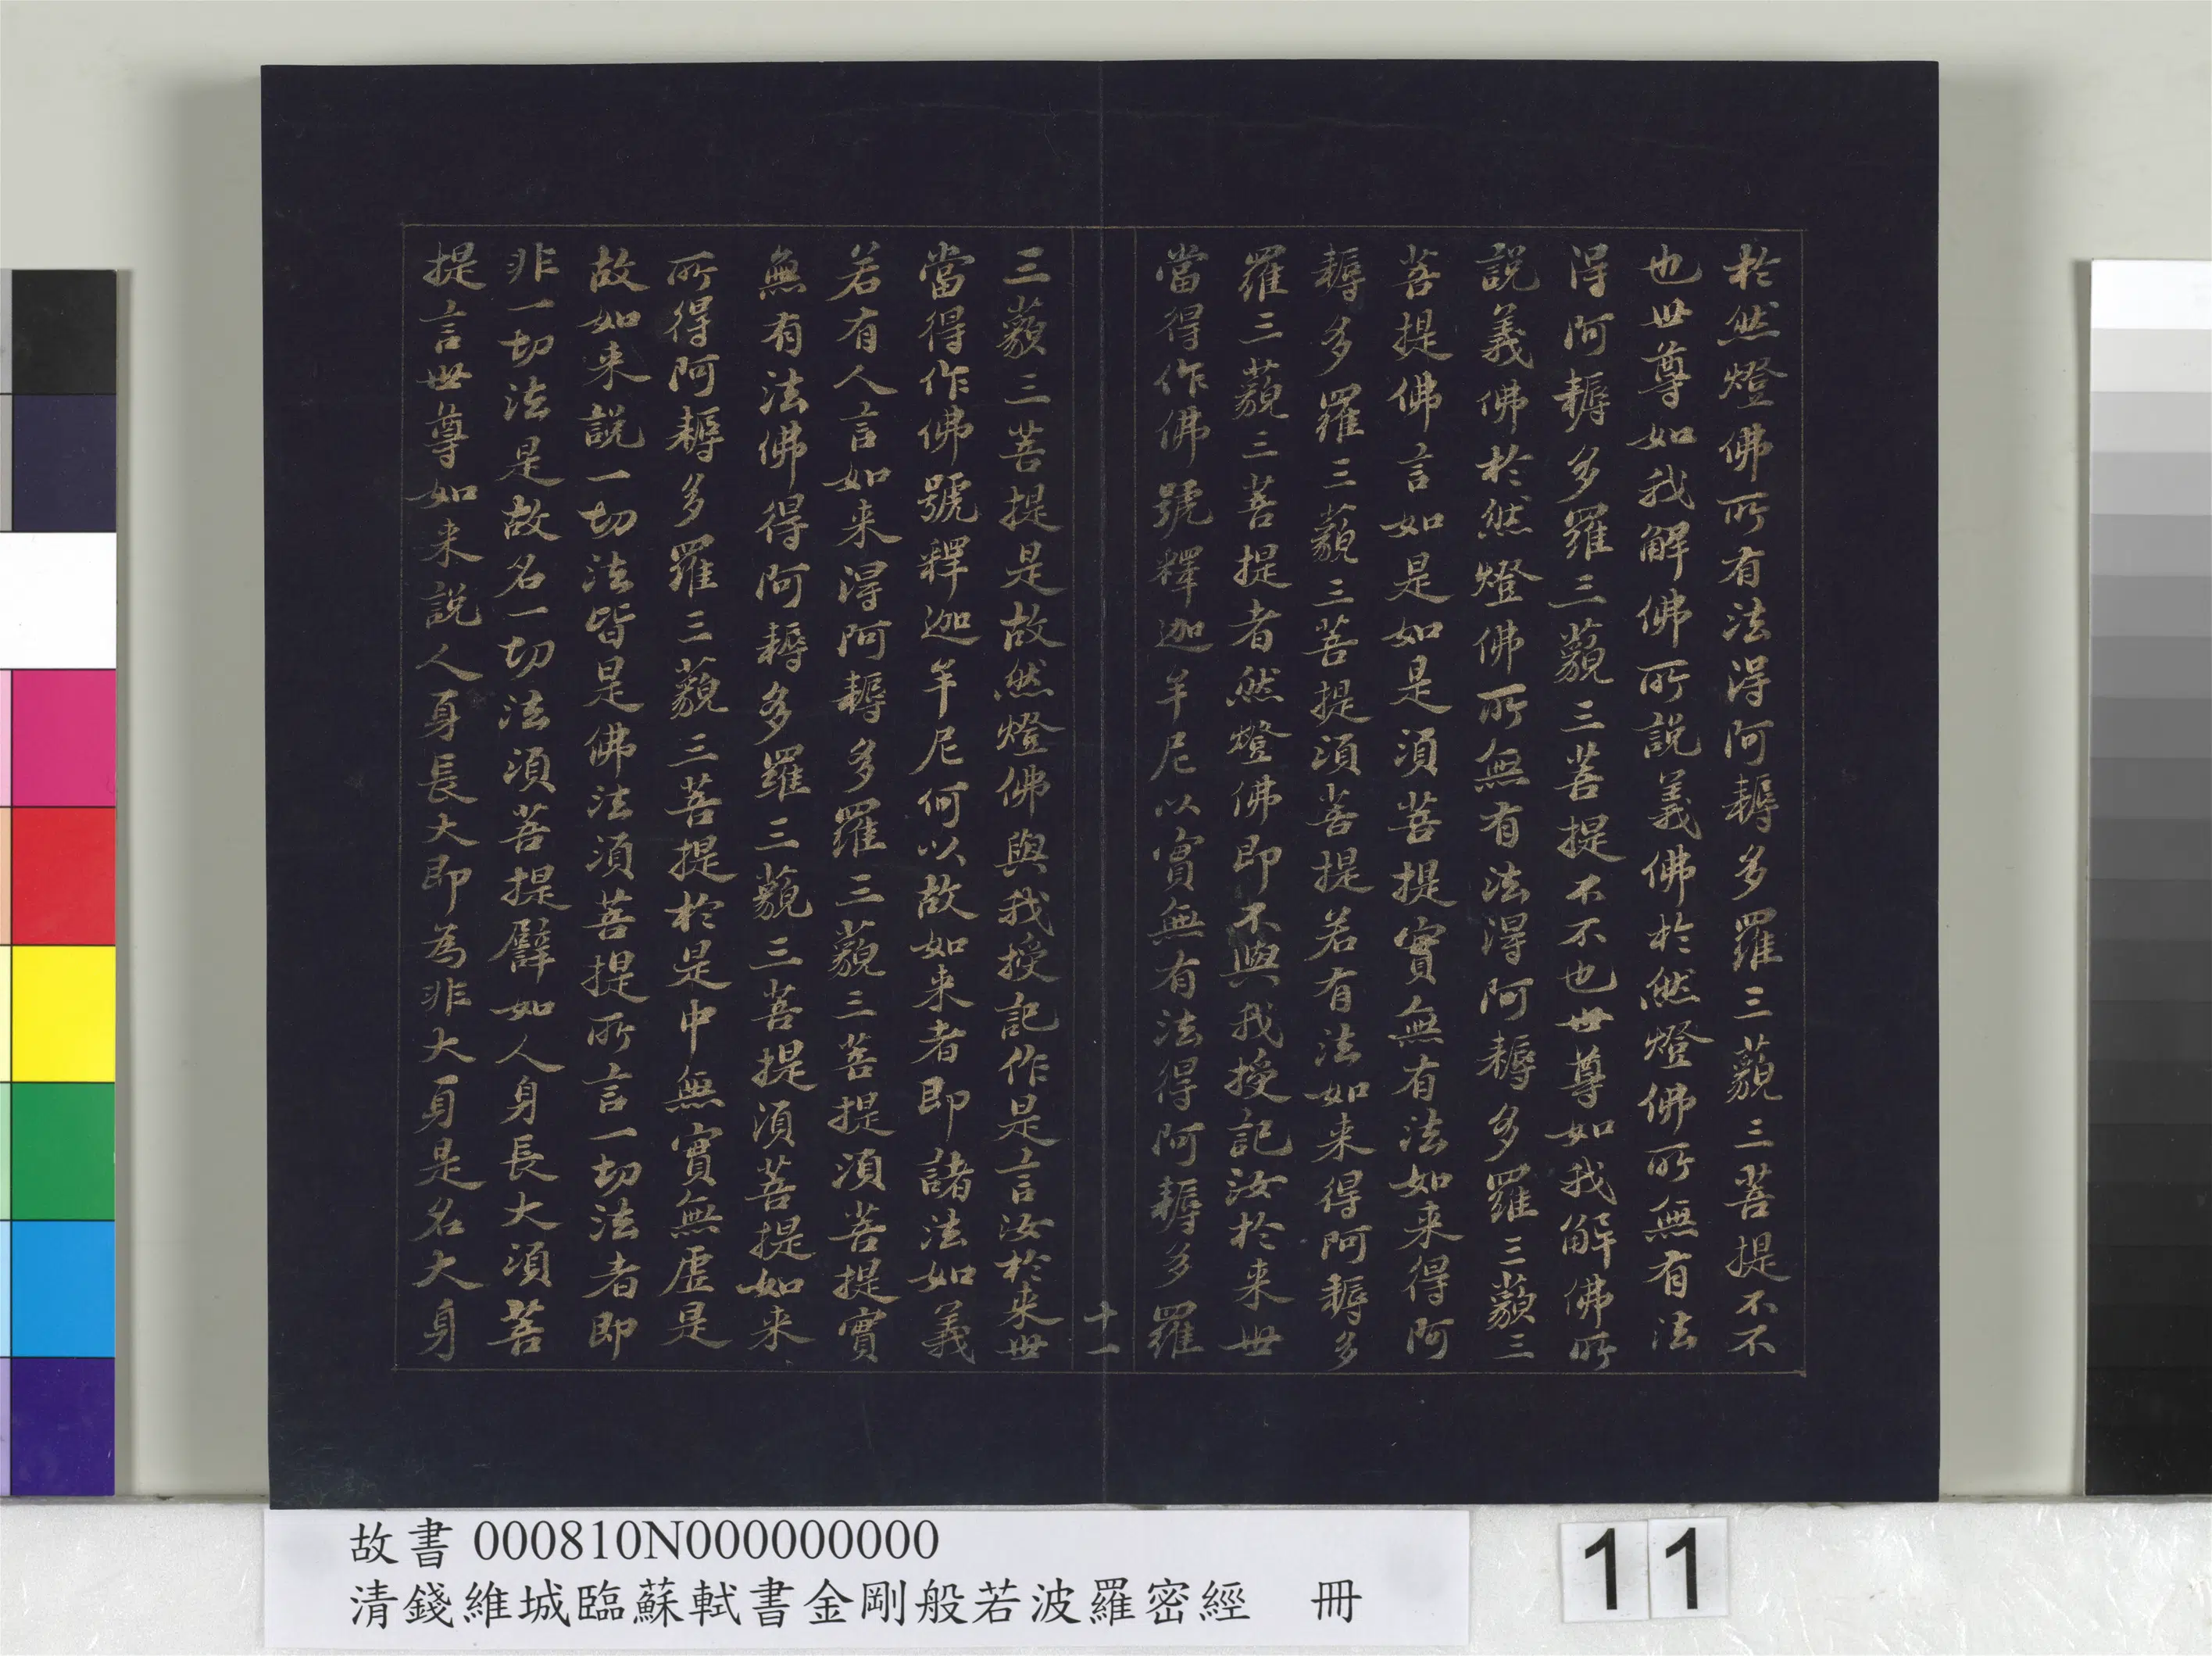 於然燈佛所有法得阿耨多羅三藐三菩提不不
也世尊如我解佛所說義佛於然燈佛所無有法
得阿耨多羅三藐三菩提不不也世尊如我解佛所
說義佛於然燈佛所無有法得阿耨多羅三藐三
菩提佛言如是如是須菩提實無有法如来得阿
耨多羅三藐三菩提須菩提若有法如来得阿耨多
羅三藐三菩提者然燈佛即不與我授記汝於来世
當得作佛號釋迦牟尼以實無有法得阿耨多羅
十一
三藐三菩提是故然燈佛與我授記作是言汝於来世
當得作佛號釋迦牟尼何以故如来者即諸法如義
若有人言如来得阿耨多羅三藐三菩提須菩提實
無有法佛得阿耨多羅三藐三菩提須菩提如来
所得阿耨多羅三藐三菩提於是中無實無虛是
故如来說一切法皆是佛法須菩提所言一切法者即
非一切法是故名一切法須菩提譬如人身長大須菩
提言世尊如来說人身長大即為非大身是名大身
故書 000810N000000000
清錢維城臨蘇軾書金剛般若波羅密經 冊
11